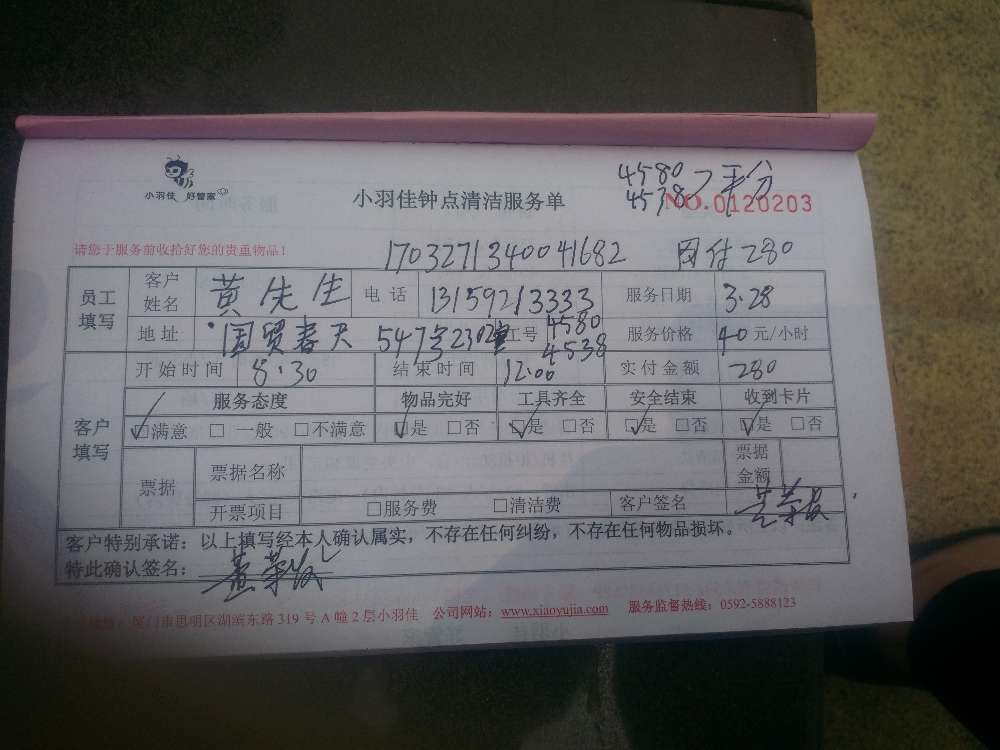 小羽佳 好管家
小羽佳钟点清洁服务单
4580
4538 平分
NO.0120203
请您于服务前收拾好您的贵重物品！
1703271340041682 网付280
员工填写 客户姓名 黄先生 电话 13159213333 服务日期 3.28
地址 国贸春天 547号2302室 工号 4580 4538 服务价格 40元/小时
开始时间 8.30 结束时间 12.00 实付金额 280
客户填写 服务态度 物品完好 工具齐全 安全结束 收到卡片
□满意 □一般 □不满意 □是 □否 □是 □否 □是 □否 □是 □否
票据 票据名称 票据金额
开票项目 □服务费 □清洁费 客户签名
客户特别承诺：以上填写经本人确认属实，不存在任何纠纷，不存在任何物品损坏。
特此确认签名：
厦门市思明区湖滨东路319号A幢2层小羽佳 公司网站：www.xiaoyujia.com 服务监督热线：0592-5888123